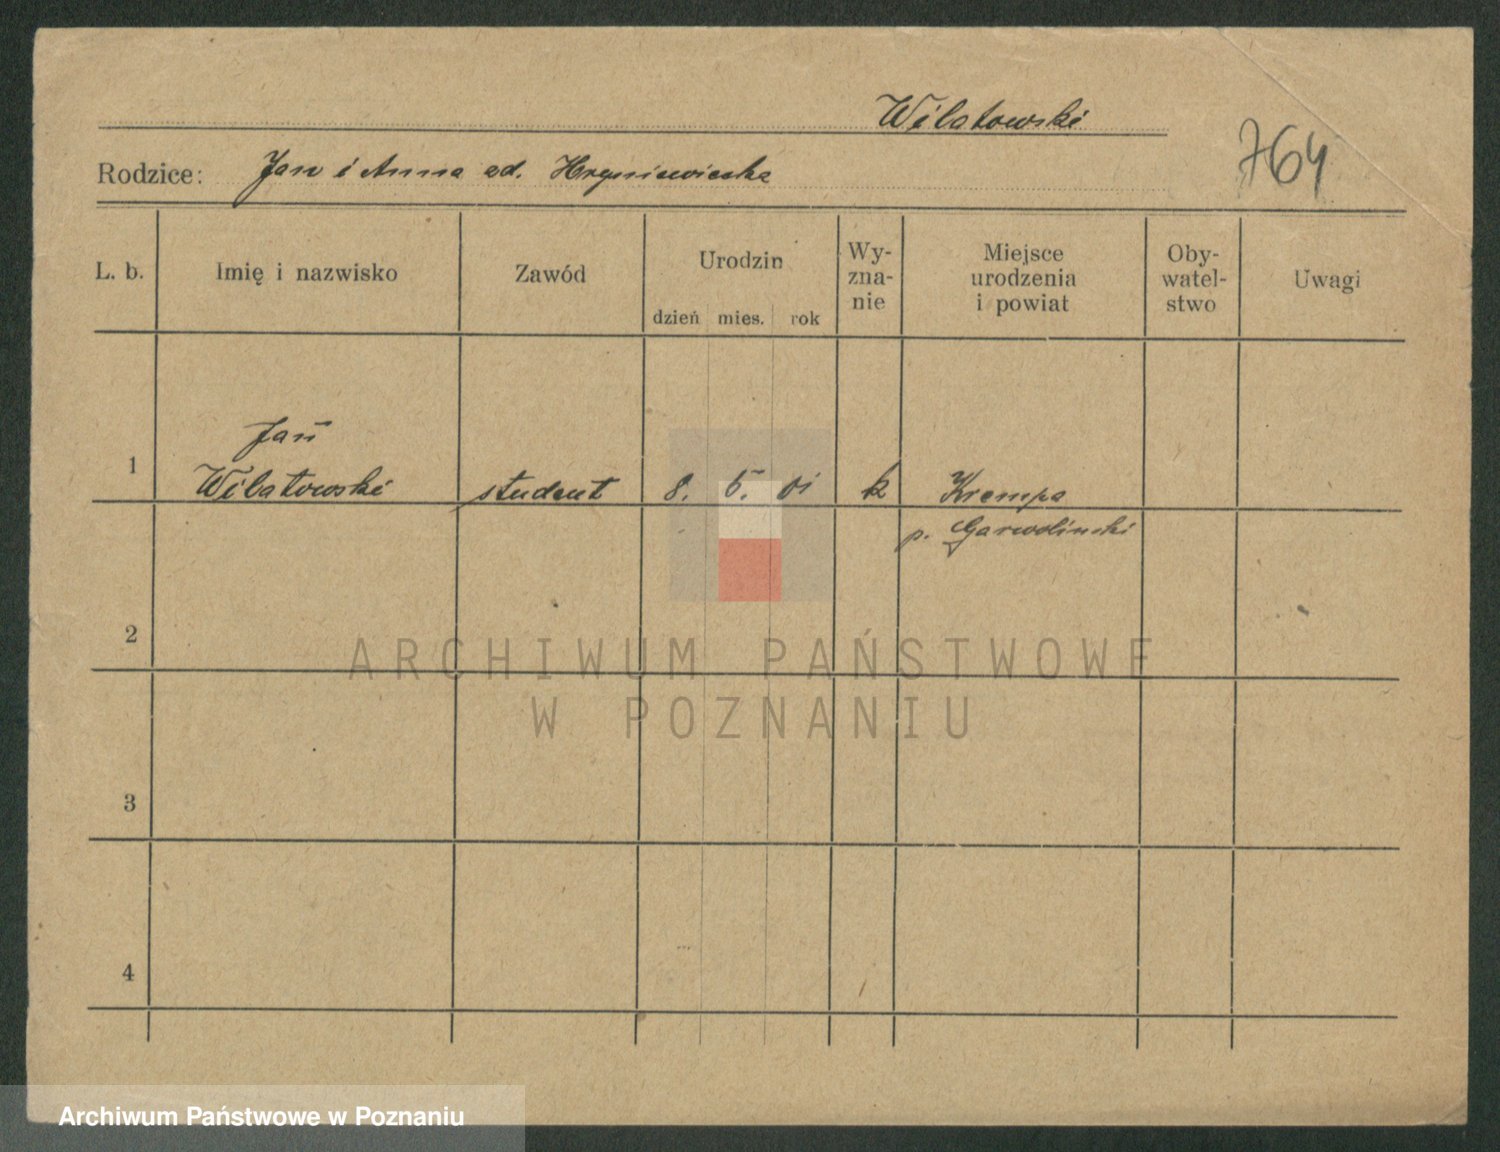 Wilatowski
764
Rodzice: Jan i Anna zd.
L. b. Imię i nazwisko Zawód Urodzin dzień mies. rok Wy-zna-nie Miejsce urodzenia i powiat Oby-watel-stwo Uwagi
Jan
1 Wilatowski student 8. 5. 01 k Krempa
p. Garwoliński
2
3
4
ARCHIWUM PAŃSTWOWE
W POZNANIU
Archiwum Państwowe w Poznaniu